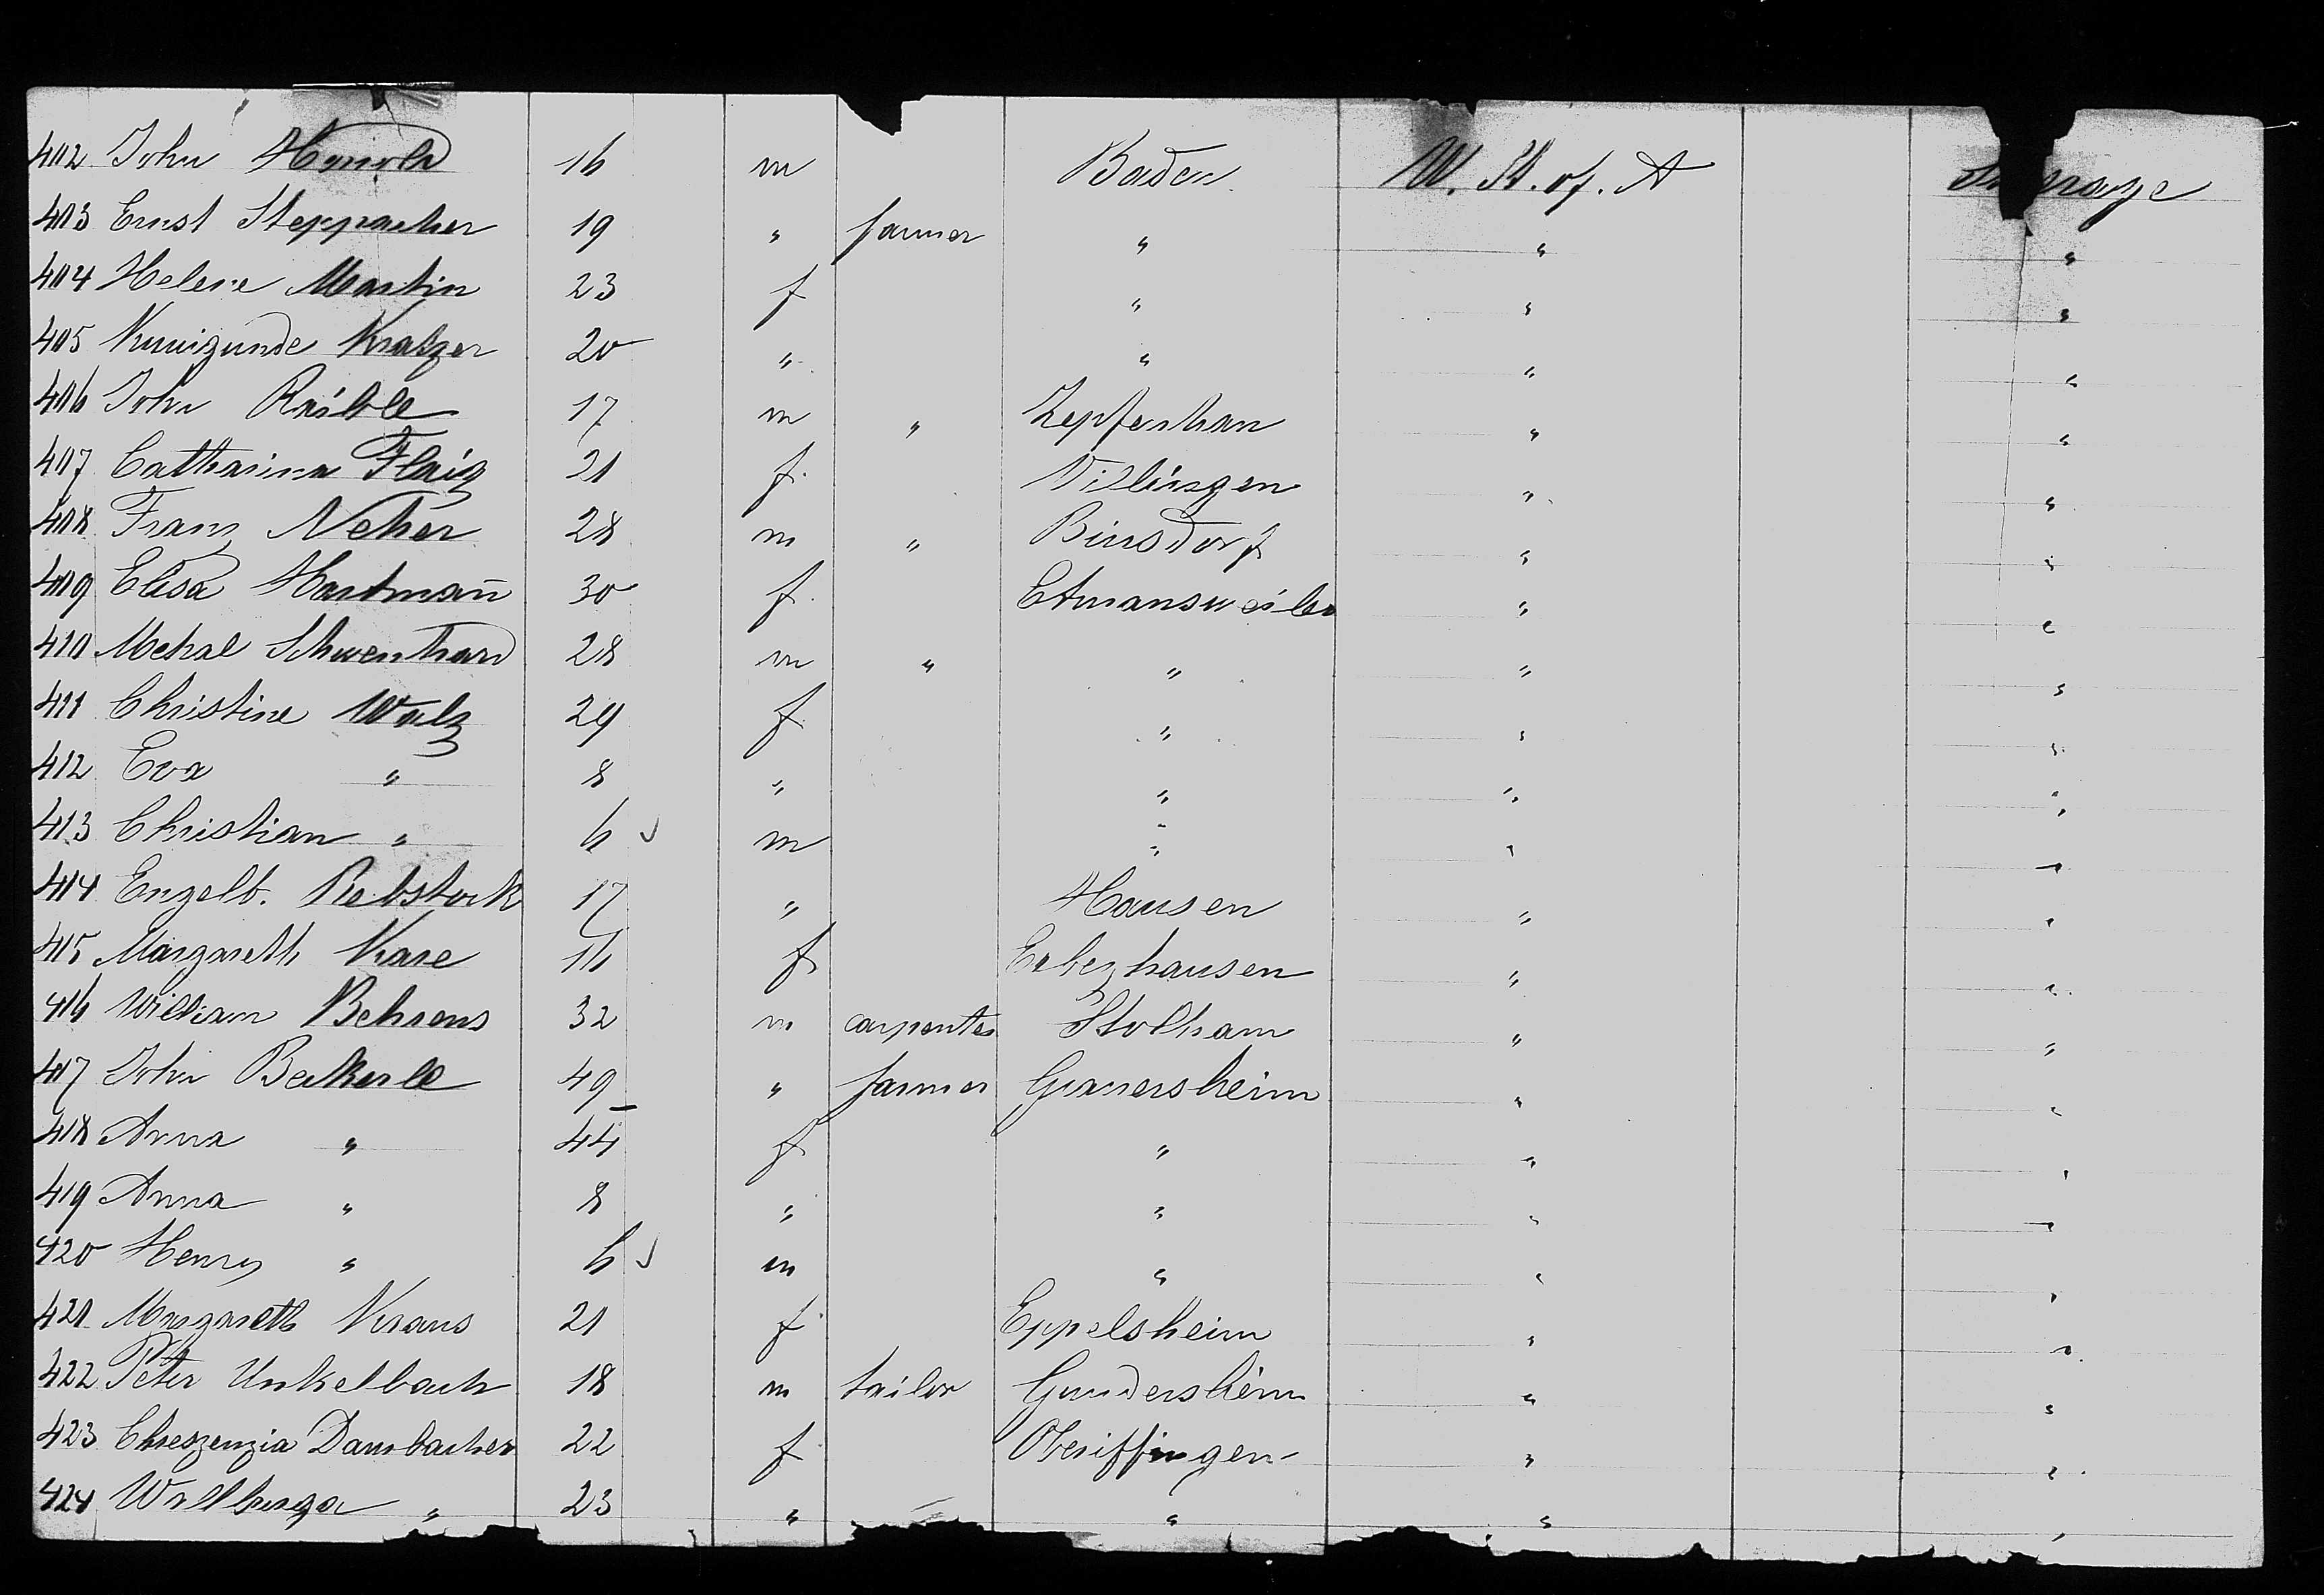 402 John 16 m Baden U. St. of. A
403 Ernst Steppacher 19 " farmer " " "
404 Helene Martin 23 f " " "
405 Kunigunde Kratzer 20 " " " "
406 John Raible 17 m " Zepfenhan " "
407 Catharina Flaig 21 f. Villingen " "
408 Franz Neher 28 m " Binsdorf " "
409 Elisa Hartman̄ 30 f. Etmansweiler " "
410 Schwenkhard 28 m " " " "
411 Christine Walz 29 f. " " "
412 Eva " 8 " " " "
413 Christian " 6 m " " "
414 Engelb. Rebstock 17 " Hausen " "
415 Margareth 16 f " "
416 William Behrens 32 m carpenter Stolham " "
417 John Beckerle 49 " farmer " "
418 Anna " 44 f " " "
419 Anna " 8 " " " "
420 Henry " 6 m " " "
421 Margareth Kraus 21 f Eppelsheim " "
422 Peter Unkelbach 18 m tailor Gundersheim " "
423 Chreszenzia Dambacher 22 f Oberiffingen " "
424 Wallburga " 23 " " " "